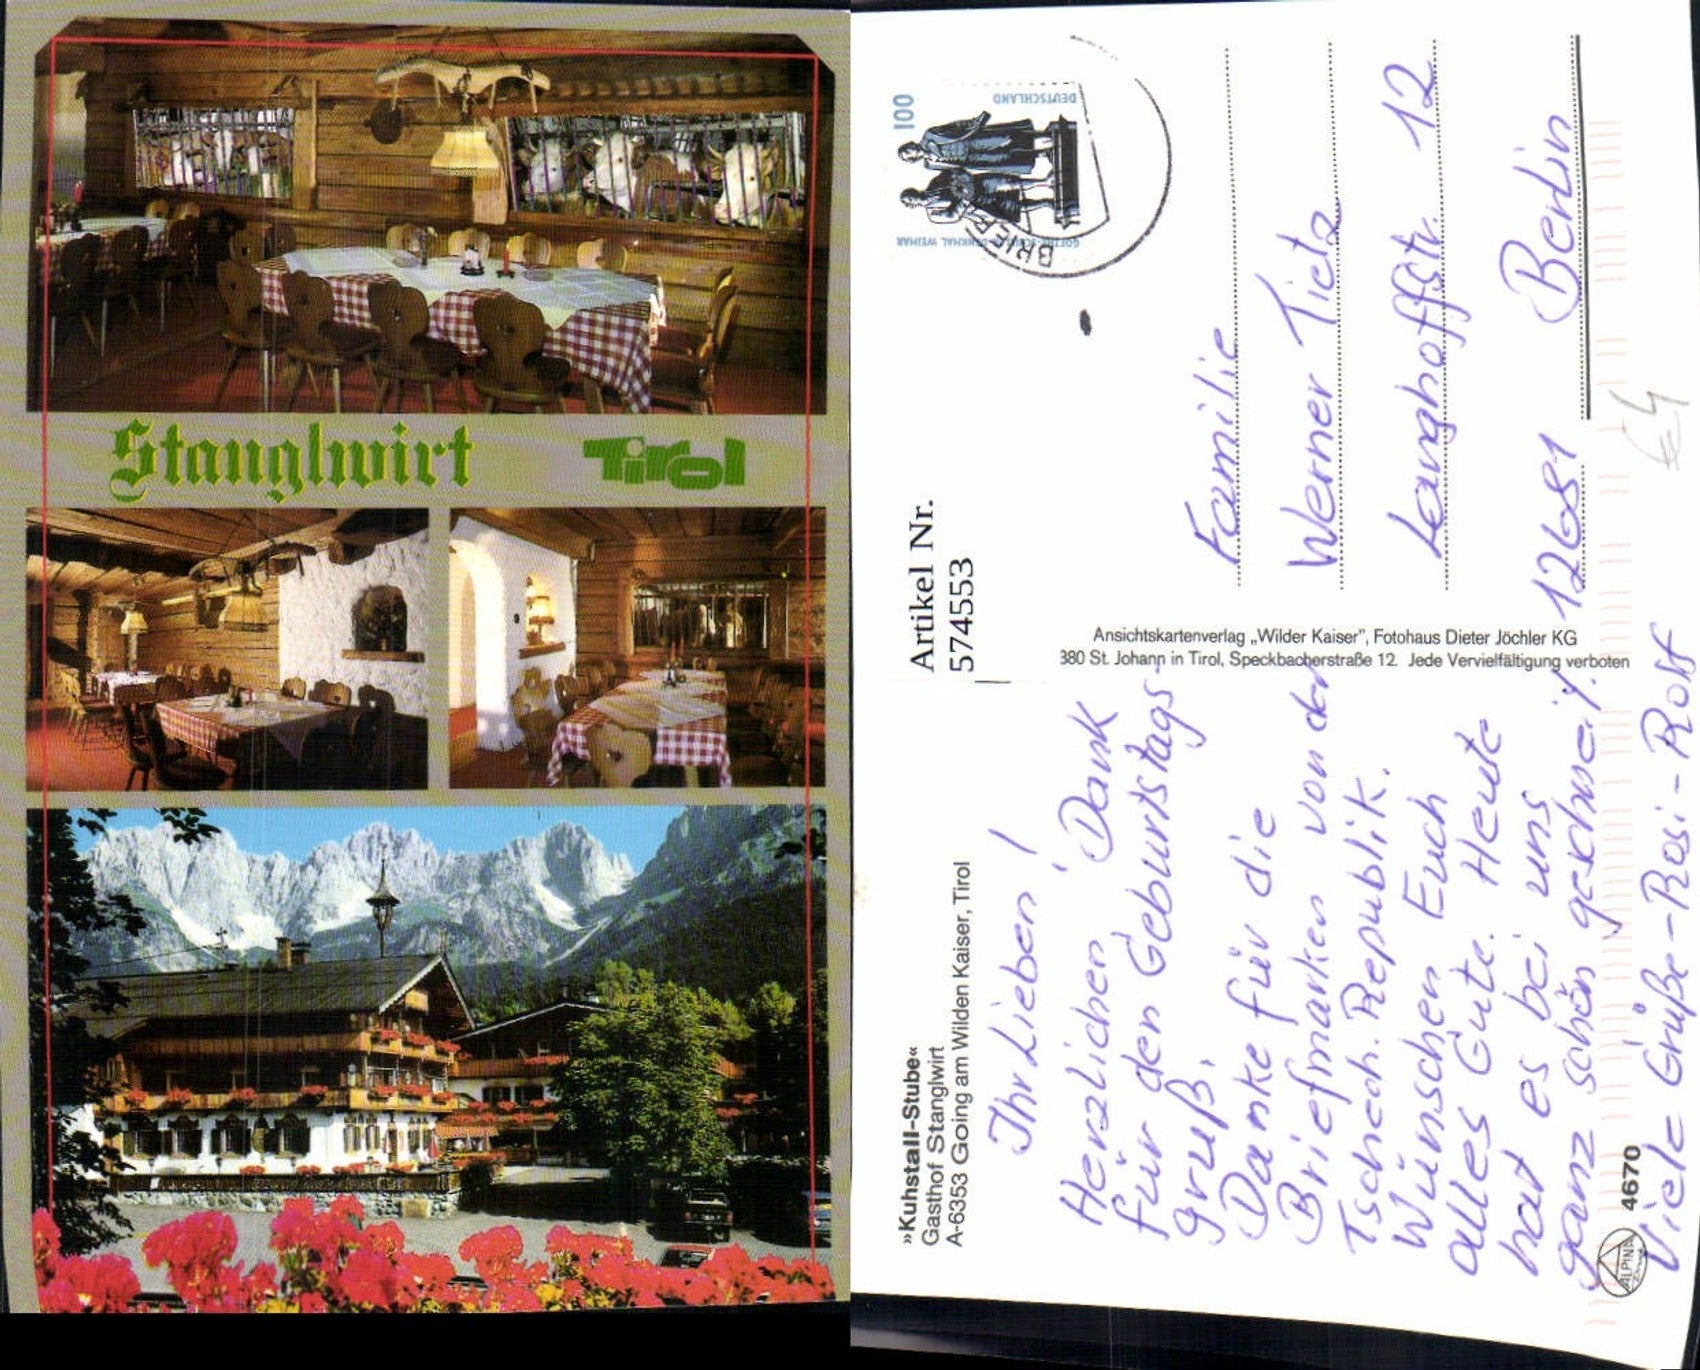 Stanglwirt Tirol
»Kuhstall-Stube«
Gasthof Stanglwirt
A-6353 Going am Wilden Kaiser, Tirol
Ihr Lieben!
Herzlichen Dank
für den Geburtstags-
gruß.
Danke für die
Briefmarken von der
Tschech. Republik.
Wünschen Euch
alles Gute. Heute
hat es bei uns
ganz schön geschneit.
Viele Grüße - Rosi - Rolf
ALPINA
4670
Artikel Nr.
574553
Ansichtskartenverlag „Wilder Kaiser”, Fotohaus Dieter Jöchler KG
380 St. Johann in Tirol, Speckbacherstraße 12. Jede Vervielfältigung verboten
100
DEUTSCHLAND
GOETHE-SCHILLER-DENKMAL WEIMAR
BRIEF
Familie
Werner Tietz
Langhoffstr. 12
12681 Berlin
€4